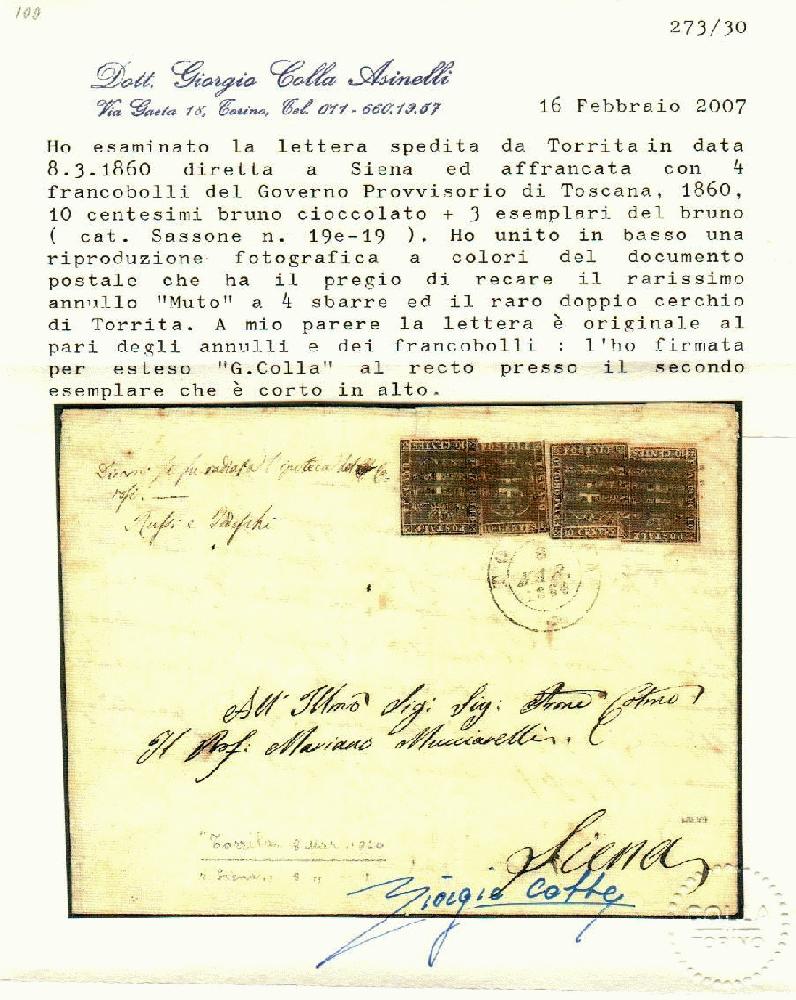 199
273/30
Dott. Giorgio Colla Asinelli
Via Gaeta 18, Torino, Tel. 011 - 660.19.57
16 Febbraio 2007
Ho esaminato la lettera spedita da Torrita in data
8.3.1860 diretta a Siena ed affrancata con 4
francobolli del Governo Provvisorio di Toscana, 1860,
10 centesimi bruno cioccolato + 3 esemplari del bruno
( cat. Sassone n. 19e-19 ). Ho unito in basso una
riproduzione fotografica a colori del documento
postale che ha il pregio di recare il rarissimo
annullo "Muto" a 4 sbarre ed il raro doppio cerchio
di Torrita. A mio parere la lettera è originale al
pari degli annulli e dei francobolli : l'ho firmata
per esteso "G.Colla" al recto presso il secondo
esemplare che è corto in alto.
All' Illmo Sigr
Il Prof: Mariano Mucciarelli.
Siena
Torrita 8 Mar.
Siena
Giorgio Colla
COLLA
TORINO